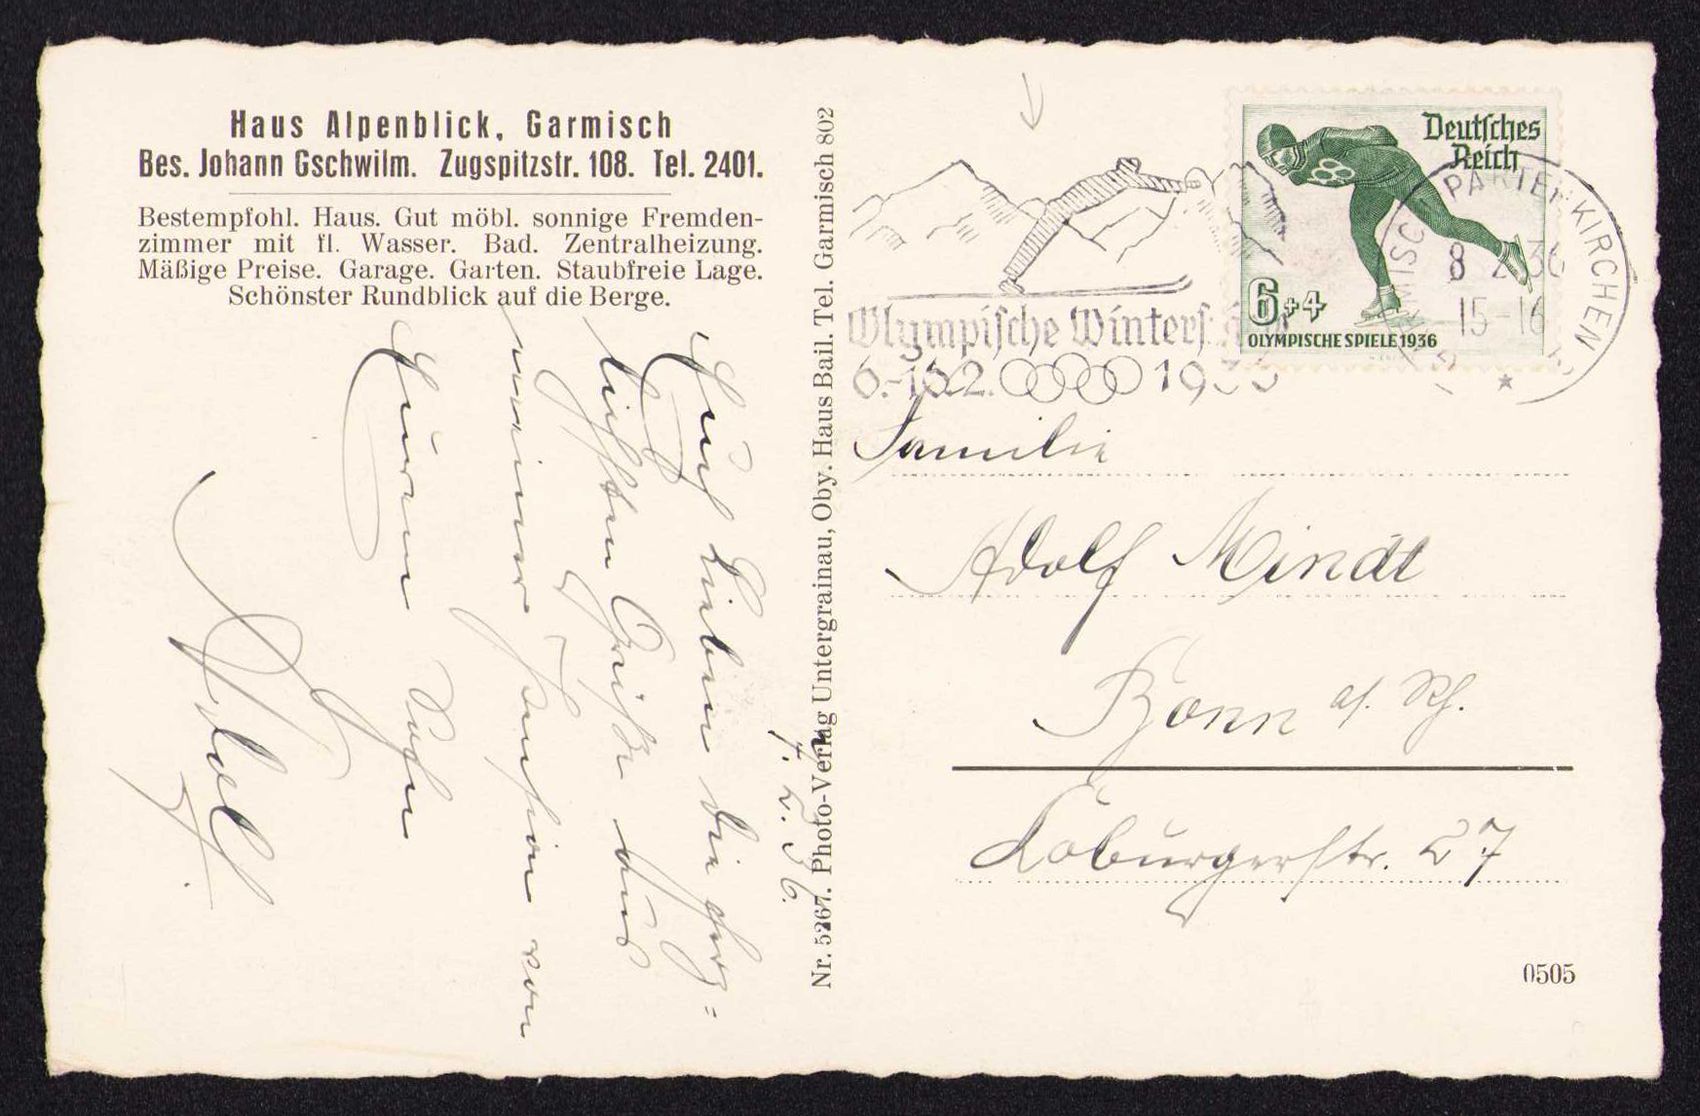 Haus Alpenblick, Garmisch
Bes. Johann Gschwilm. Zugspitzstr. 108. Tel. 2401.
Bestempfohl. Haus. Gut möbl. sonnige Fremden-
zimmer mit fl. Wasser. Bad. Zentralheizung.
Mäßige Preise. Garage. Garten. Staubfreie Lage.
Schönster Rundblick auf die Berge.
7. 2. 36.
Euch Lieben die herz-
lichsten Grüße aus
meiner Pension von
Eurem Sohn
Adolf.
Nr. 5267. Photo-Verlag Untergrainau, Oby. Haus Bail. Tel. Garmisch 802
Deutsches
Reich
6+4
OLYMPISCHE SPIELE 1936
GARMISCH-PARTENKIRCHEN
8 2 36
15-16
Olympische Winterspiele
6.-16.2. 1936
Familie
Adolf Mindt
Bonn a/. Rh.
Coburgerstr. 27
0505